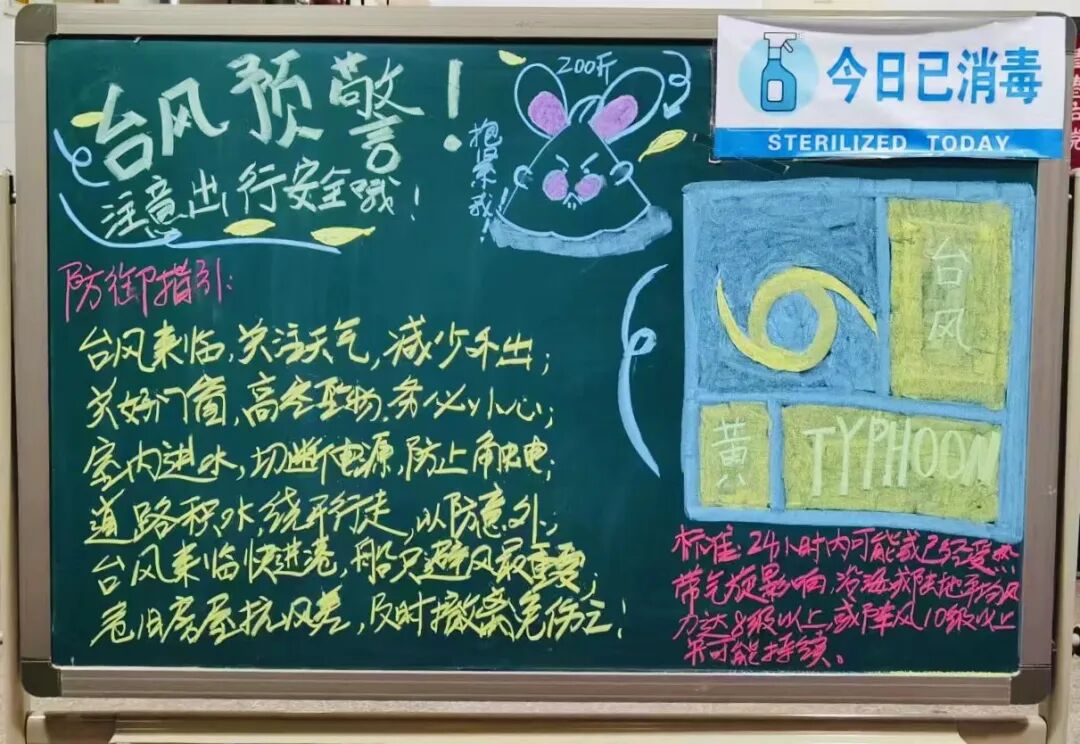 台风预警！
注意出行安全哦！
200斤
抱紧我！
今日已消毒
STERILIZED TODAY
防御指引：
台风来临，关注天气，减少外出；
关好门窗，高空坠物，务必小心；
室内进水，切断电源，防止触电；
道路积水，绕形行走，以防意外；
台风来临快进港，船只避风最重要；
危旧房屋抗风差，及时撤离免伤亡！
台风
黄
TYPHOON
标准：24小时内可能或已经受热
带气旋影响，沿海或陆地平均风
力达8级以上，或阵风10级以上
并可能持续。